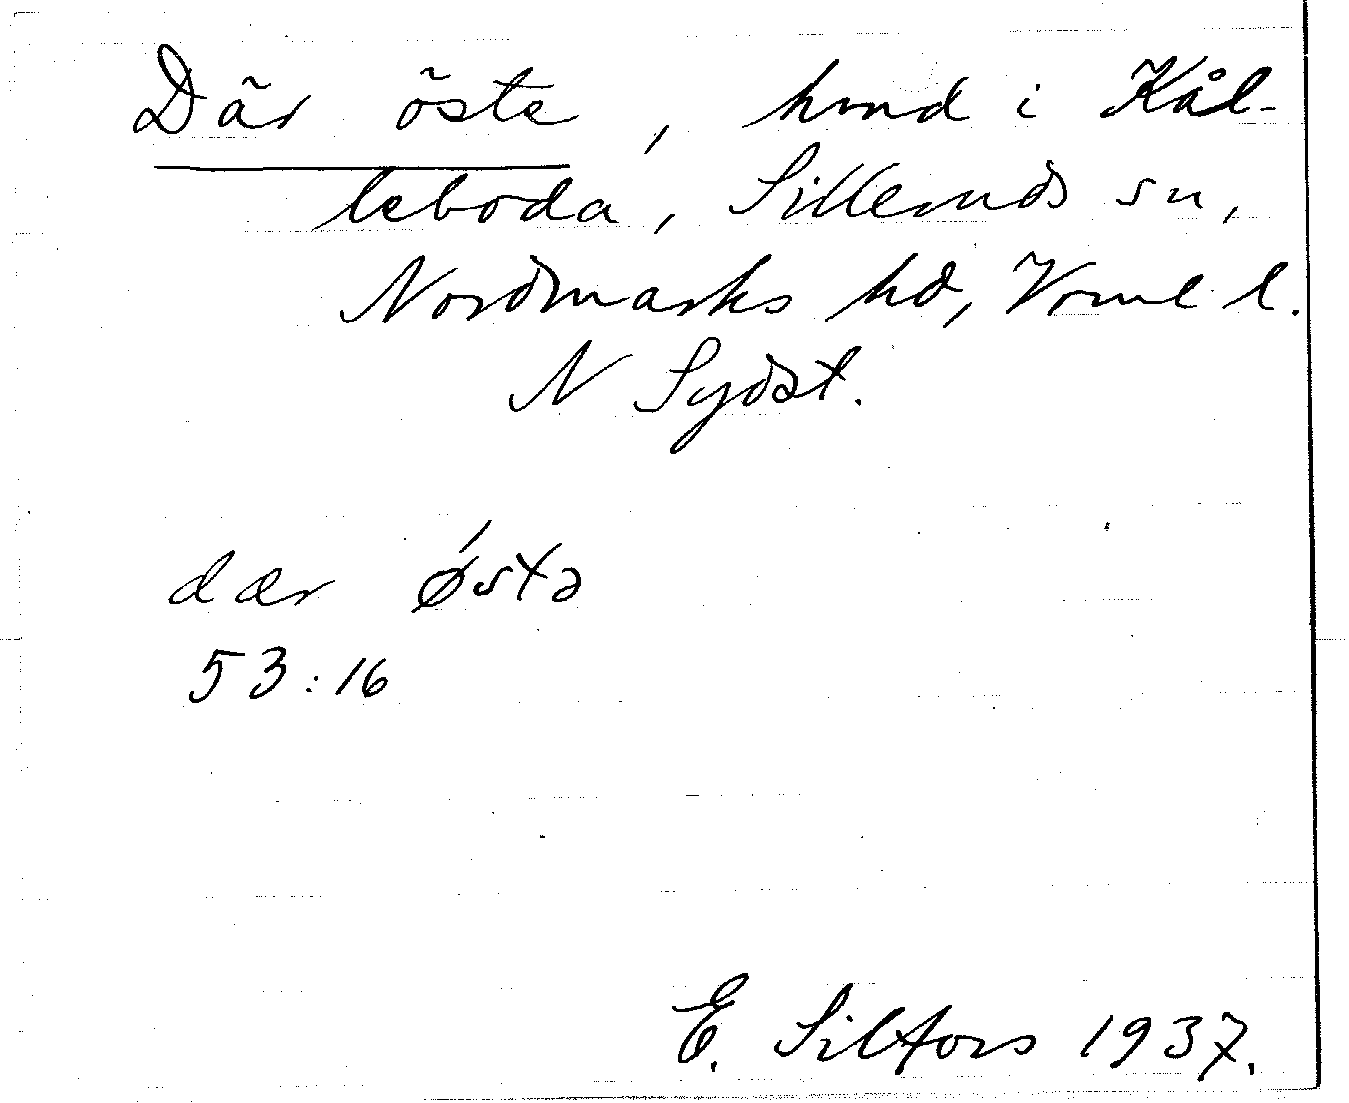 Där öste, hmd i Kål-
leboda, Silleruds sn,
Nordmarks hd, Vrml l.
N Sydst.
dær østə
53:16
E. Silfors 1937.